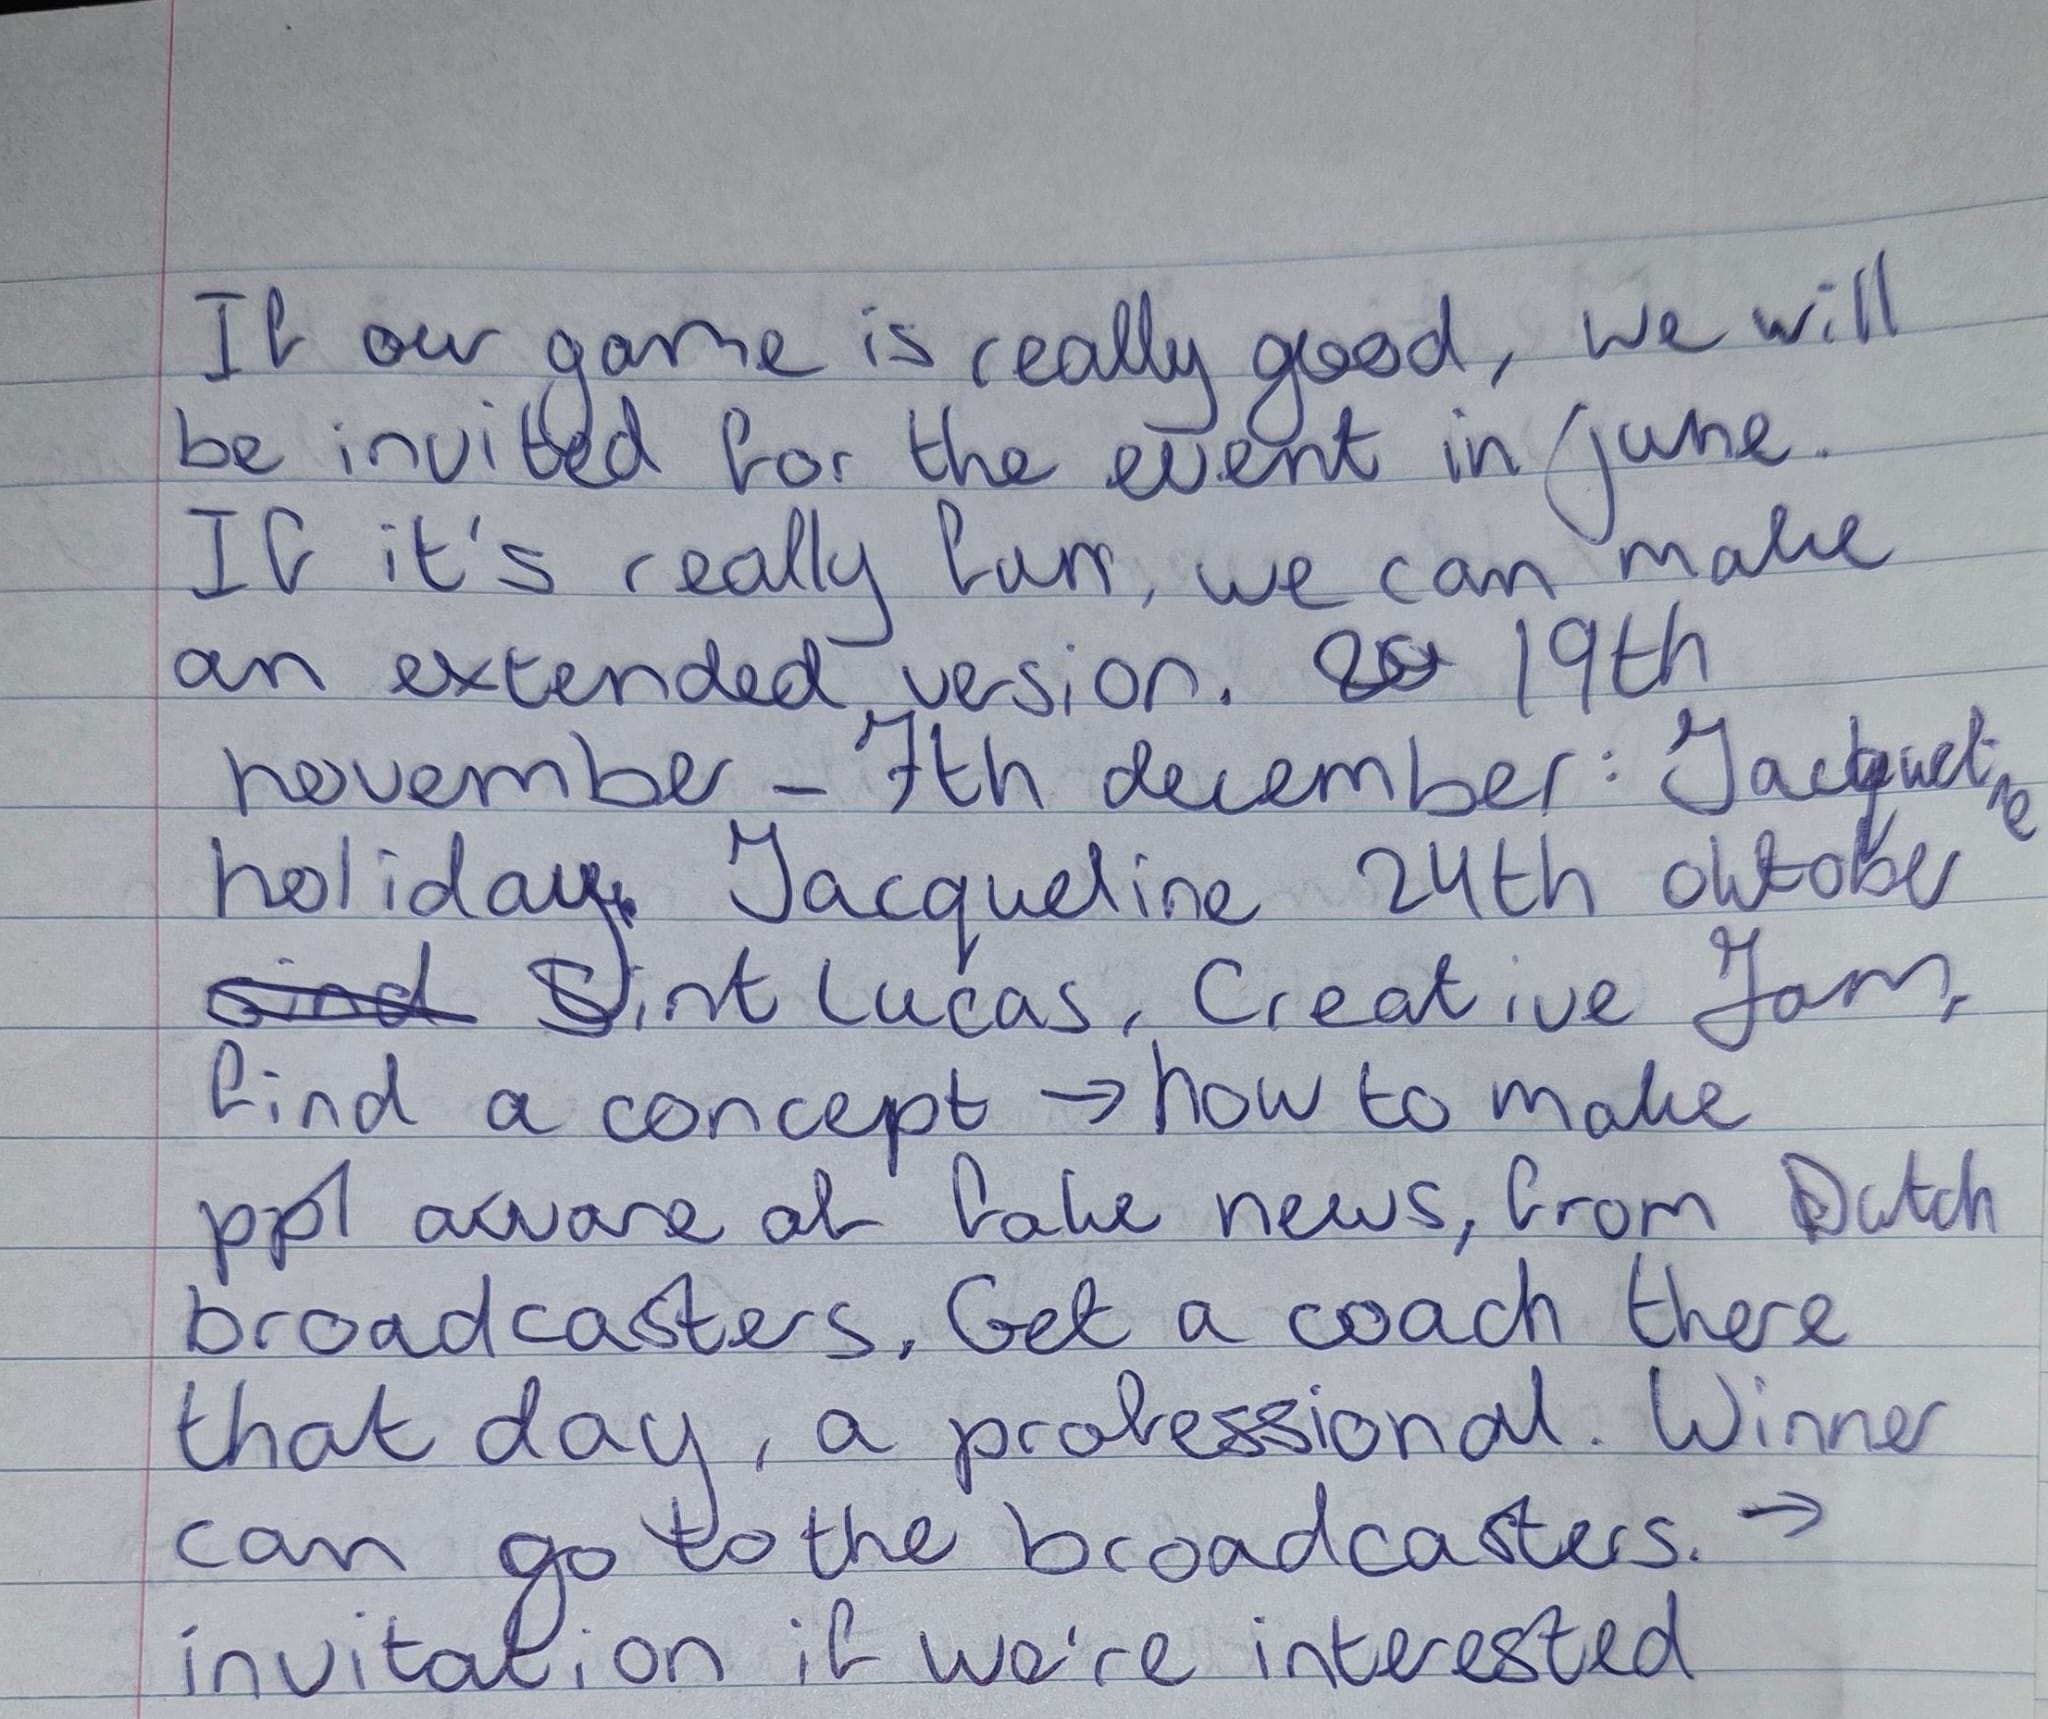 If our game is really good, we will
be invited for the event in june.
If it's really fun, we can make
an extended version. 19th
november - 7th december: Jacqueline
holiday. Jacqueline 24th oktober
Sint Lucas, Creative Jam,
find a concept → how to make
ppl aware of fake news, from Dutch
broadcasters. Get a coach there
that day, a professional. Winner
can go to the broadcasters. →
invitation if we're interested